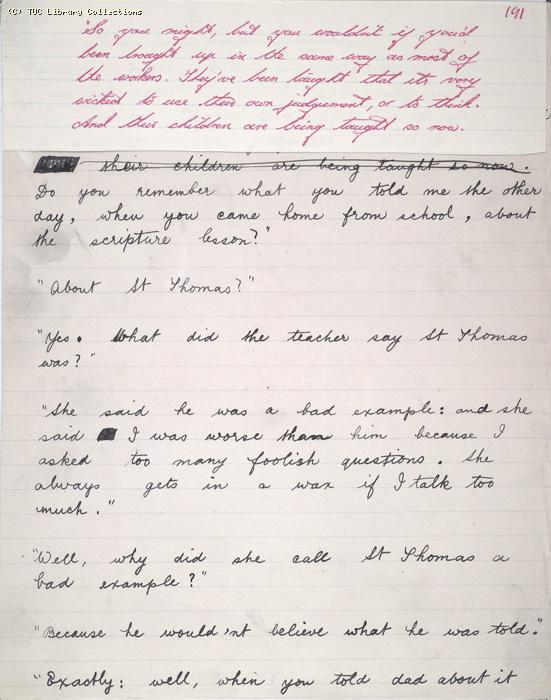 (C) TUC Library Collections
191
"So you might, but you wouldn't if you'd
been brought up in the same way as most of
the workers. They've been taught that it's very
wicked to use their own judgement, or to think.
And their children are being taught so now.
their children are being taught so now.
Do you remember what you told me the other
day, when you came home from school, about
the scripture lesson?"
"About St Thomas?"
"Yes. What did the teacher say St Thomas
was?"
"She said he was a bad example: and she
said I was worse than him because I
asked too many foolish questions. She
always gets in a wax if I talk too
much."
"Well, why did she call St Thomas a
bad example?"
"Because he would'nt believe what he was told."
"Exactly: well, when you told dad about it